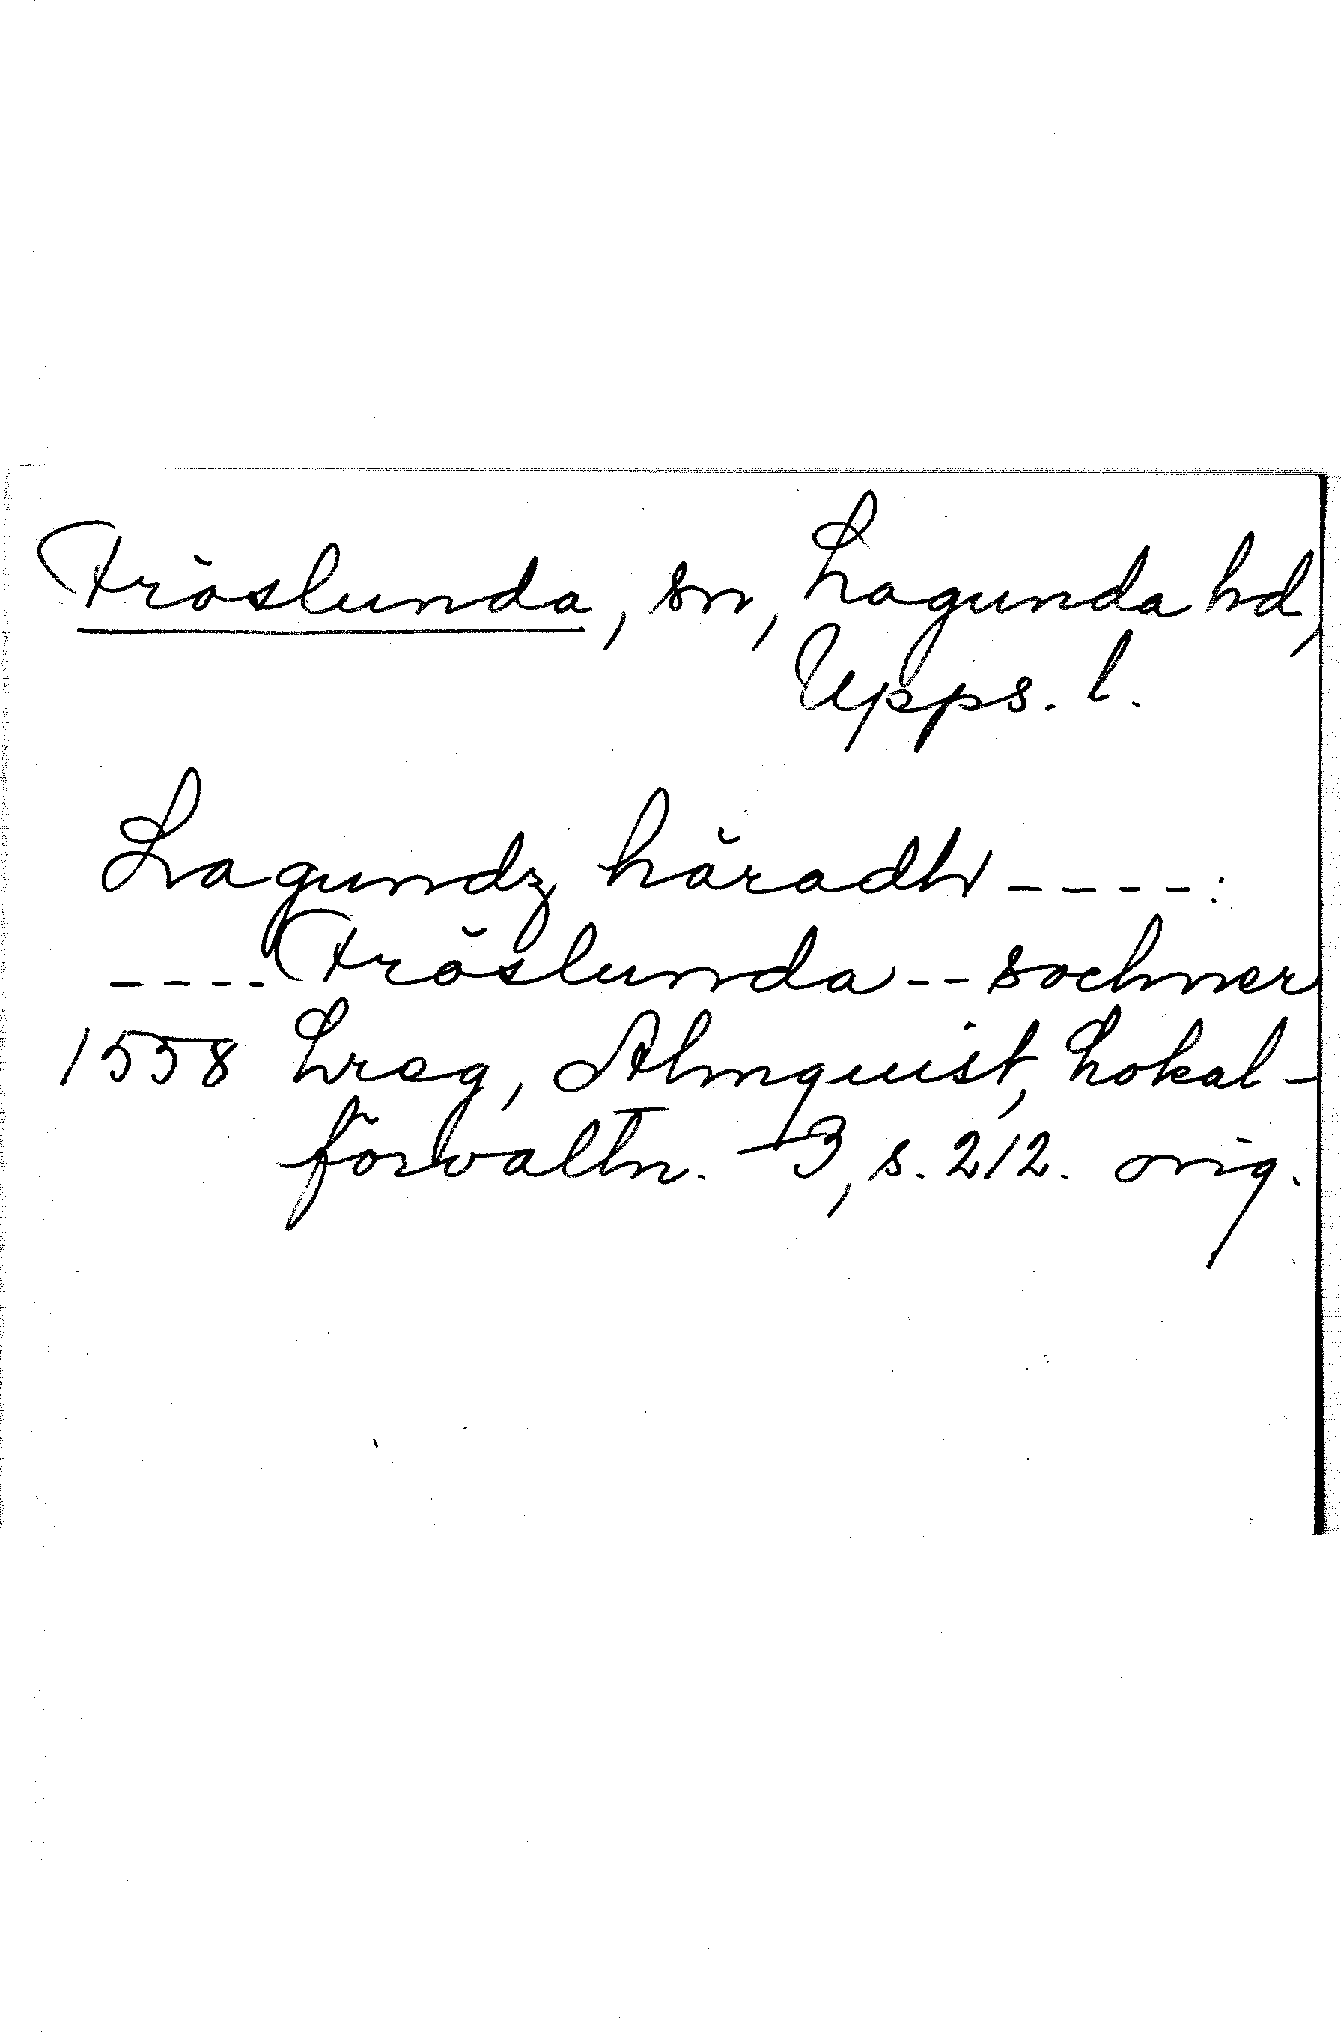 Fröslunda, sn, Lagunda hd,
Upps. l.
Lagundz häradh ----:
---- Fröslunda -- sochner
1558 Lreg, Almquist, Lokal-
förvaltn. 3, s. 212. orig.